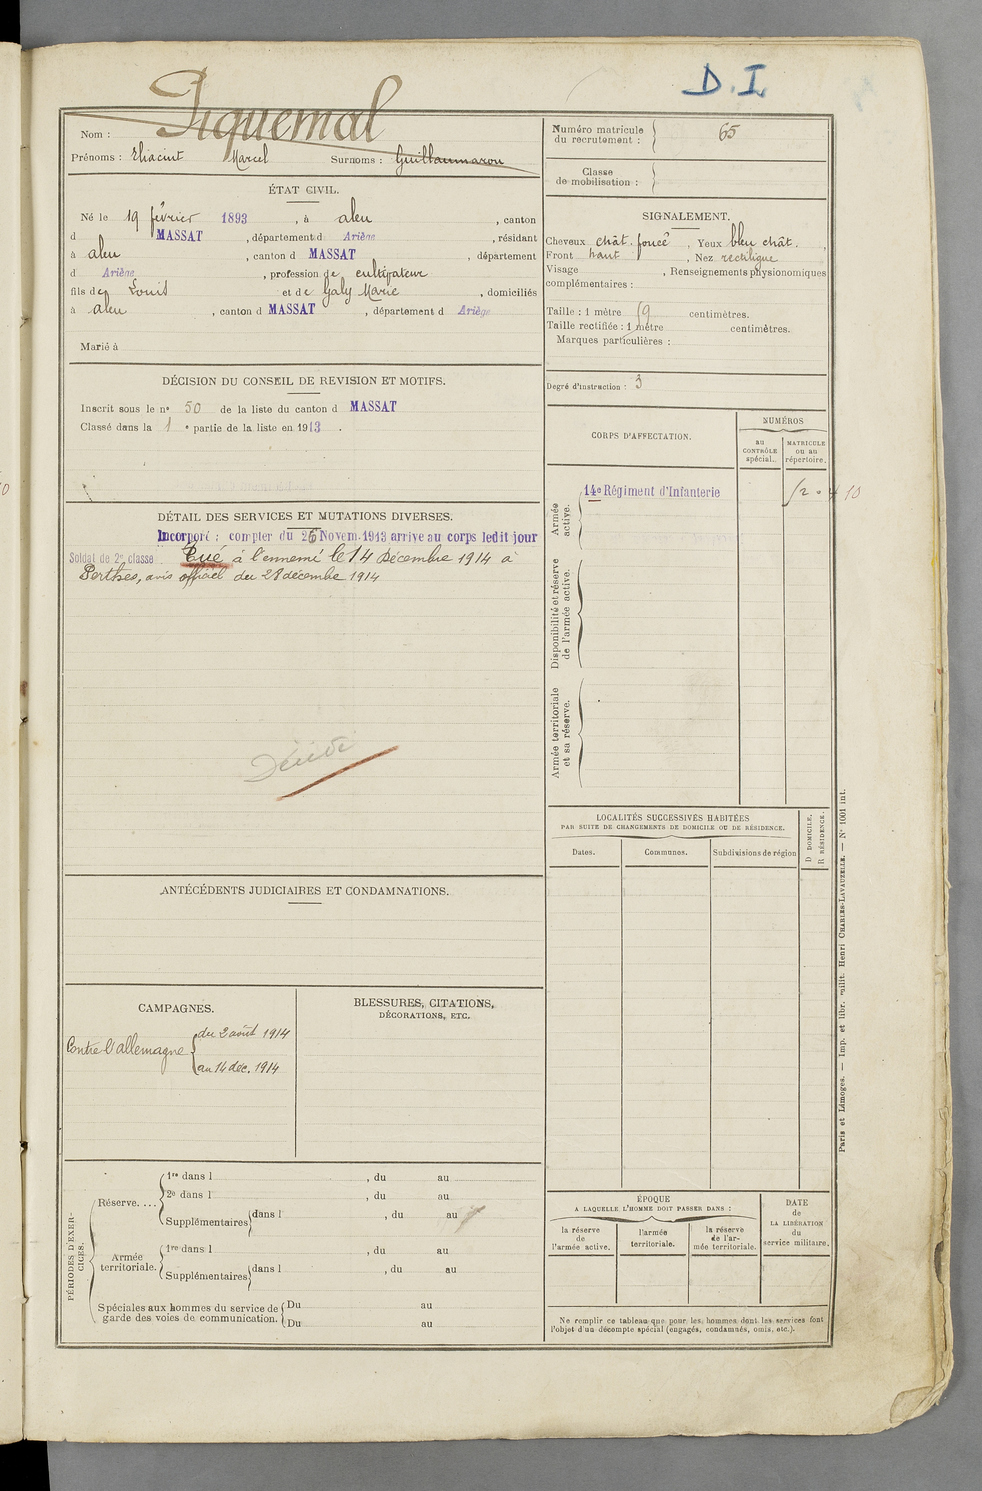 D. I.
Nom : Piquemal
Prénoms : Hiacint Marcel Surnoms : Guillaumarou
Numéro matricule du recrutement : 65
Classe de mobilisation :
ÉTAT CIVIL.
Né le 19 février 1893, à aleu, canton
d MASSAT, département d Ariège, résidant
à aleu, canton d MASSAT, département
d Ariège, profession de cultivateur
fils de Louis et de Galy Marie, domiciliés
à aleu, canton d MASSAT, département d Ariège
Marié à
SIGNALEMENT.
Cheveux chât. foncé, Yeux bleu chât.,
Front haut, Nez rectiligne
Visage , Renseignements physionomiques
complémentaires :
Taille : 1 mètre 59 centimètres.
Taille rectifiée : 1 mètre centimètres.
Marques particulières :
Degré d'instruction : 3
DÉCISION DU CONSEIL DE REVISION ET MOTIFS.
Inscrit sous le n° 50 de la liste du canton d MASSAT
Classé dans la 1 e partie de la liste en 1913.
CORPS D'AFFECTATION.
NUMÉROS
au CONTRÔLE spécial.
MATRICULE ou au répertoire.
Armée active.
14e Régiment d'Infanterie
10
Disponibilité et réserve de l'armée active.
Armée territoriale et sa réserve.
DÉTAIL DES SERVICES ET MUTATIONS DIVERSES.
Incorporé : compter du 26 Novem. 1913 arrive au corps ledit jour
Soldat de 2e classe Tué à l'ennemi le 14 Décembre 1914 à
Perthes, avis officiel du 28 décembre 1914
Décédé
LOCALITÉS SUCCESSIVES HABITÉES
PAR SUITE DE CHANGEMENTS DE DOMICILE OU DE RÉSIDENCE.
Dates.
Communes.
Subdivisions de région
D DOMICILE.
R RÉSIDENCE.
ANTÉCÉDENTS JUDICIAIRES ET CONDAMNATIONS.
CAMPAGNES.
Contre l'allemagne
du 2 août 1914
au 14 déc. 1914
BLESSURES, CITATIONS,
DÉCORATIONS, ETC.
PÉRIODES D'EXERCICES.
Réserve....
1re dans l , du au
2e dans l , du au
Supplémentaires dans l , du au
Armée territoriale.
1re dans l , du au
Supplémentaires dans l , du au
Spéciales aux hommes du service de
garde des voies de communication.
Du au
Du au
ÉPOQUE
A LAQUELLE L'HOMME DOIT PASSER DANS :
la réserve de l'armée active.
l'armée territoriale.
la réserve de l'armée territoriale.
DATE de LA LIBÉRATION du service militaire.
Ne remplir ce tableau que pour les hommes dont les services font
l'objet d'un décompte spécial (engagés, condamnés, omis, etc.).
Paris et Limoges. — Imp. et libr. milit. Henri CHARLES-LAVAUZELLE. — N° 1001 int.